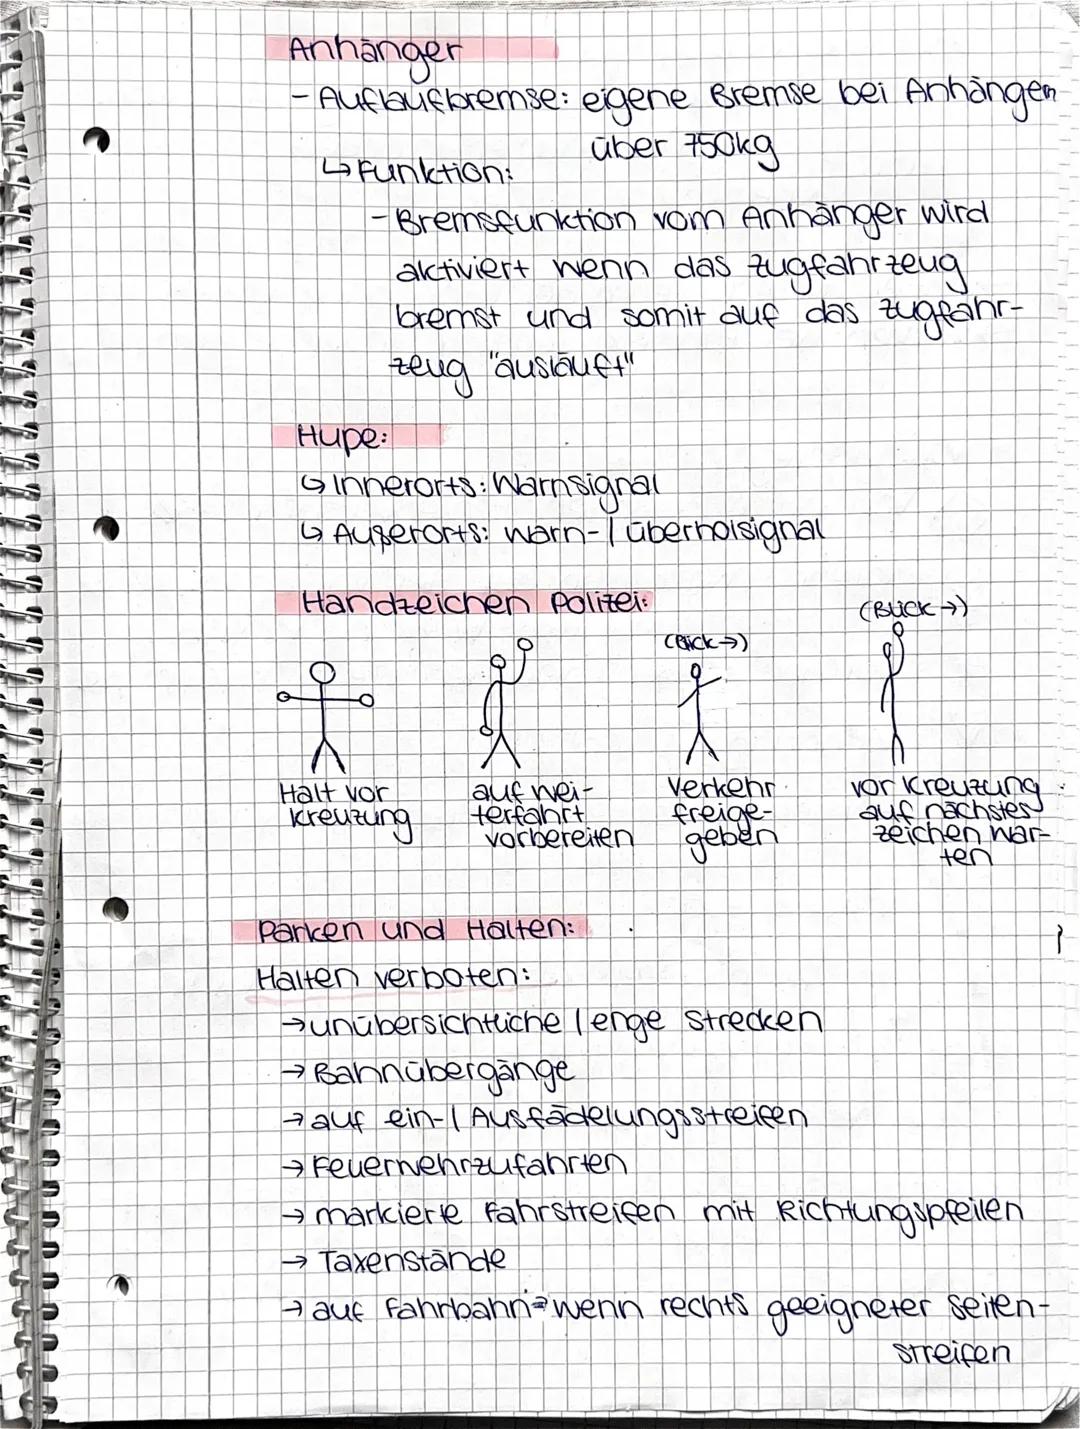 Anhänger
- Auflaufbremse: eigene Bremse bei Anhängern
über 750kg
↳ Funktion:
- Bremsfunktion vom Anhänger wird
aktiviert wenn das Zugfahrzeug
bremst und somit auf das Zugfahr-
zeug "ausläuft"
Hupe:
↳ Innerorts: Warnsignal
↳ Außerorts: Warn-/Überholsignal
Handzeichen Polizei:
(Blick →)
(Blick →)
Halt vor
Kreuzung
auf Wei-
terfahrt
vorbereiten
Verkehr
freige-
geben
vor Kreuzung
auf nächstes
Zeichen war-
ten
Parken und Halten:
Halten verboten:
→ unübersichtliche / enge Strecken
→ Bahnübergänge
→ auf ein-/Ausfädelungsstreifen
→ Feuerwehrzufahrten
→ markierte Fahrstreifen mit Richtungspfeilen
→ Taxenstände
→ auf Fahrbahn → wenn rechts geeigneter Seiten-
streifen